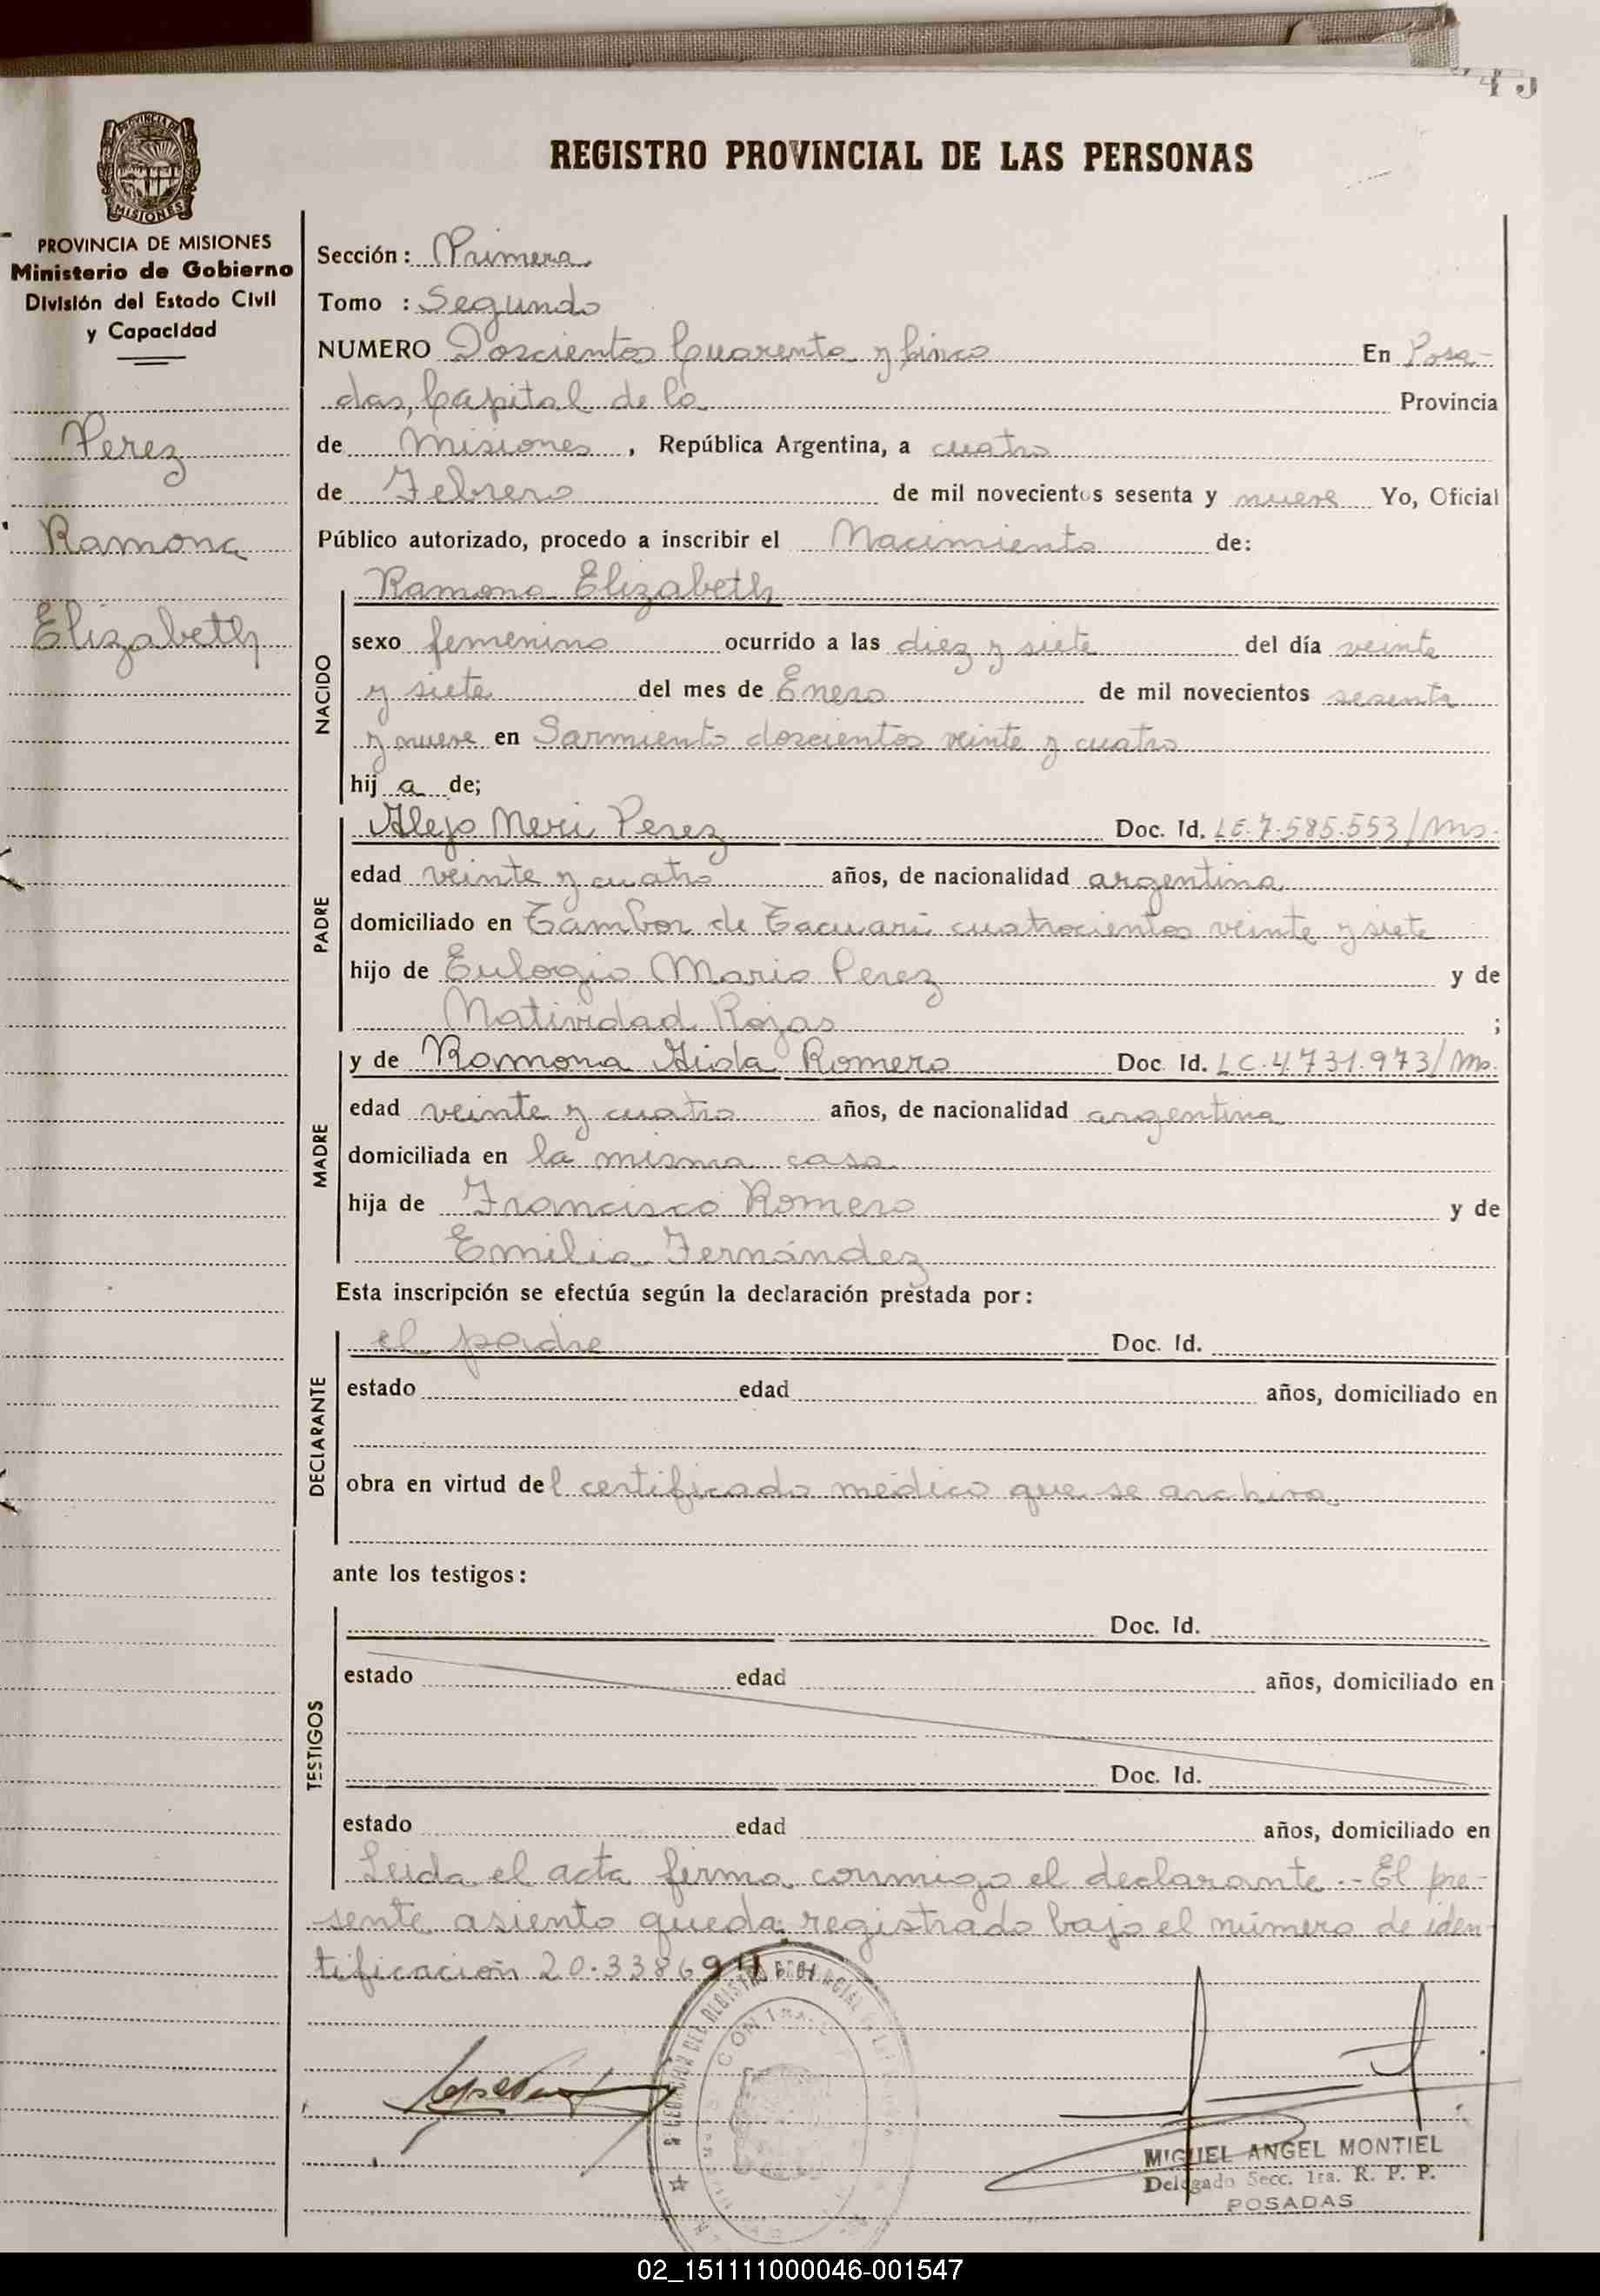 REGISTRO PROVINCIAL DE LAS PERSONAS
PROVINCIA DE
MISIONES
PROVINCIA DE MISIONES
Ministerio de Gobierno
División del Estado Civil
y Capacidad
Perez
Ramona
Elizabeth
Sección: Primera
Tomo : Segundo
NUMERO Doscientos Cuarenta y Cinco En Posa-
das, Capital de la Provincia
de Misiones, República Argentina, a cuatro
de Febrero de mil novecientos sesenta y nueve Yo, Oficial
Público autorizado, procedo a inscribir el Nacimiento de:
Ramona Elizabeth
NACIDO
sexo femenino ocurrido a las diez y siete del día veinte
y siete del mes de Enero de mil novecientos sesenta
y nueve en Sarmiento doscientos veinte y cuatro
hij a de;
PADRE
Alejo Neri Perez Doc. Id. LE.7.585.553/Ms.
edad veinte y cuatro años, de nacionalidad argentina
domiciliado en Tambor de Tacuari cuatrocientos veinte y siete
hijo de Eulogio Mario Perez y de
Natividad Rojas ;
MADRE
y de Ramona Aida Romero Doc. Id. LC.4.731.973/Ms.
edad veinte y cuatro años, de nacionalidad argentina
domiciliada en la misma casa
hija de Francisco Romero y de
Emilia Fernández
Esta inscripción se efectúa según la declaración prestada por:
DECLARANTE
el padre Doc. Id.
estado edad años, domiciliado en
obra en virtud del certificado médico que se archiva
ante los testigos:
TESTIGOS
Doc. Id.
estado edad años, domiciliado en
Doc. Id.
estado edad años, domiciliado en
Leida el acta firma conmigo el declarante.- El pre-
sente asiento queda registrado bajo el número de iden
tificación 20.338694
MIGUEL ANGEL MONTIEL
Delegado Secc. 1ra. R. P. P.
POSADAS
02_151111000046-001547